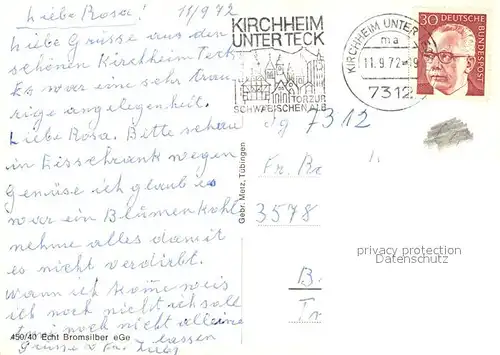 Liebe Rosa! 11/9 72
Liebe Grüsse aus den
schönen Kirchheim Teck
Es war eine sehr trau
rige angelegenheit.
Liebe Rosa. Bitte schau
in Eisschrank wegen
Gemüse ich glaub es
war ein Blumenkohl
nehme alles damit
es nicht verdirbt.
Wann ich komme weis
ich noch nicht ich soll
noch nicht alleine
lassen
Grüsse v Fr.
450/40 Echt Bromsilber eGe
Gebr. Metz, Tübingen
KIRCHHEIM
UNTER TECK
TOR ZUR
SCHWÄBISCHEN ALB
KIRCHHEIM UNTER
ma
11.9.72-19
7312
30 DEUTSCHE
BUNDESPOST
7312
Fr. Ro
3578
privacy protection
Datenschutz